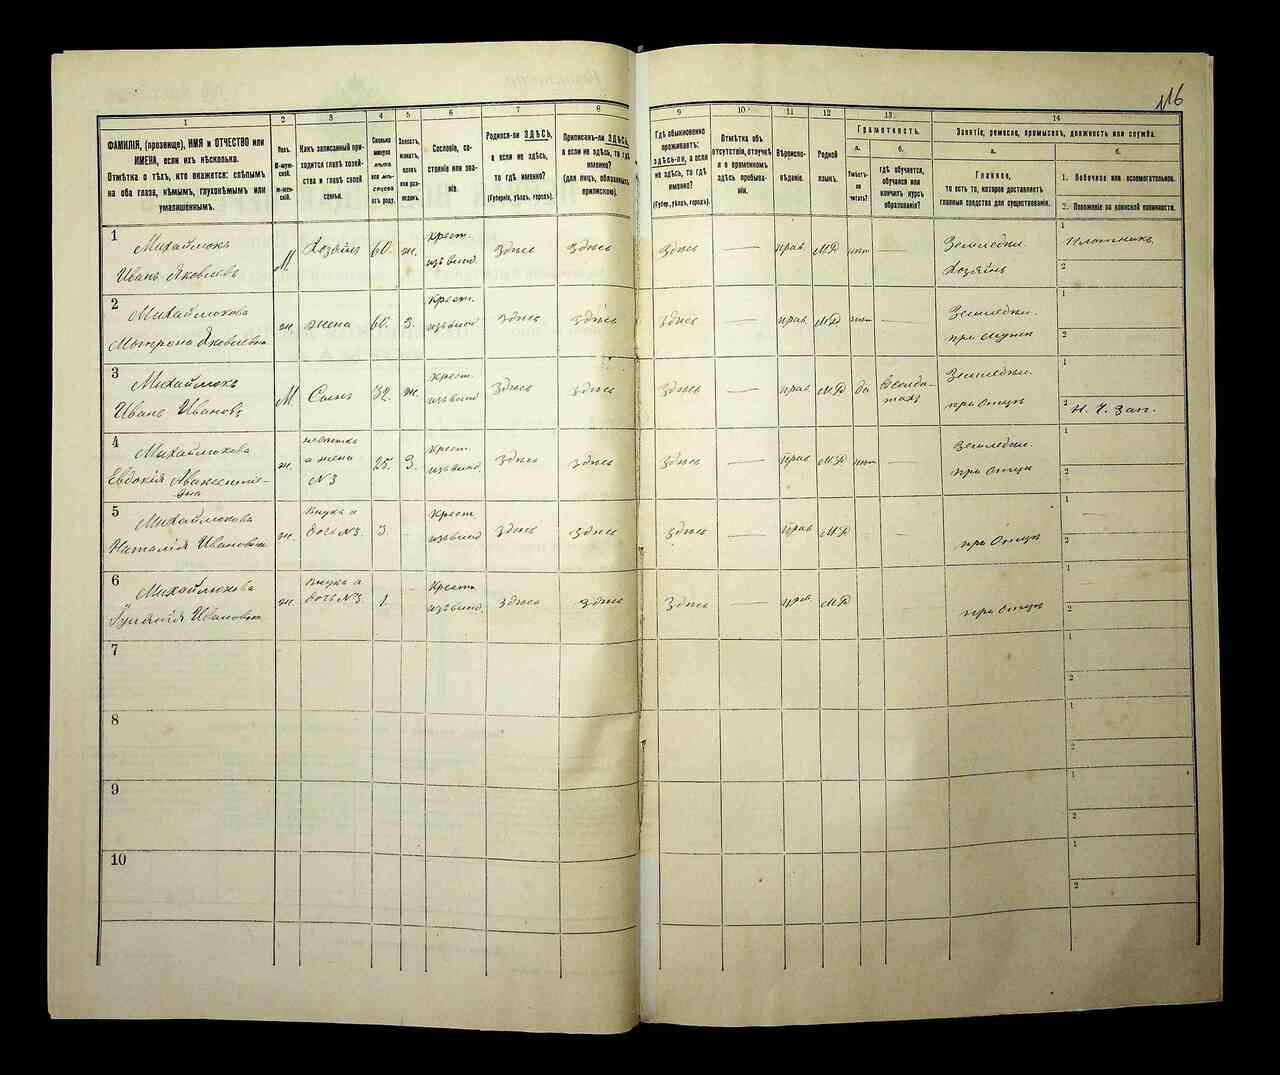 116
1
2
3
4
5
6
7
8
9
10
11
12
13
14
ФАМИЛІЯ, (прозвище), ИМЯ и ОТЧЕСТВО или
ИМЕНА, если ихъ нѣсколько.
Отмѣтка о тѣхъ, кто окажется: слѣпымъ
на оба глаза, нѣмымъ, глухонѣмымъ или
умалишеннымъ.
Полъ.
М-муж-
ской.
ж-жен-
скій.
Какъ записанный при-
ходится главѣ хозяй-
ства и главѣ своей
семьи.
Сколько
минуло
лѣтъ
или мѣ-
сяцевъ
отъ роду.
Холостъ,
женатъ,
вдовъ
или раз-
веденъ.
Сословіе, со-
стояніе или зва-
ніе.
Родился-ли ЗДѢСЬ,
а если не здѣсь,
то гдѣ именно?
(Губернія, уѣздъ, городъ).
Приписанъ-ли ЗДѢСЬ,
а если не здѣсь, то гдѣ
именно?
(для лицъ, обязанныхъ
припиской).
Гдѣ обыкновенно
проживаетъ:
здѣсь-ли, а если
не здѣсь, то гдѣ
именно?
(Губер., уѣздъ, городъ).
Отмѣтка объ
отсутствіи, отлучкѣ
и о временномъ
здѣсь пребыва-
ніи.
Вѣроиспо-
вѣданіе.
Родной
языкъ.
Грамотность.
а.
Умѣетъ-
ли
читать?
б.
гдѣ обучается,
обучался или
кончилъ курсъ
образованія?
Занятіе, ремесло, промыселъ, должность или служба.
а.
Главное,
то есть то, которое доставляетъ
главныя средства для существованія.
б.
1. Побочное или вспомогательное.
2. Положеніе по воинской повинности.
1
Михайлюкъ
Иванъ Яковлевъ
М.
Хозяинъ
60.
ж.
Крест.
изъ влад.
Здѣсь
Здѣсь
Здѣсь
прав.
МР
нѣт
Земледѣл.
Хозяинъ
1
Плотникъ
2
2
Михайлюкова
Матрона Яковлевна
ж.
жена
60.
З.
Крест.
изъ влад.
Здѣсь
Здѣсь
Здѣсь
прав
МР
нѣт
Земледѣл.
при мужѣ
1
2
3
Михайлюкъ
Иванъ Ивановъ
М.
Сынъ
32.
ж.
Крест.
изъ влад
Здѣсь
Здѣсь
Здѣсь
прав
МР
да
в солда-
тахъ
Земледѣл.
при Отцѣ
1
2
Н. Ч. Зап.
4
Михайлюкова
Евдокія Авксентіе-
вна
ж.
невѣстка
а жена
№3
25.
З.
Крест.
изъ влад.
Здѣсь
Здѣсь
Здѣсь
прав
МР
нѣт
Земледѣл.
при Отцѣ
1
2
5
Михайлюкова
Наталія Ивановна
ж.
Внука а
дочь №3.
3
Крест
изъ влад
Здѣсь
Здѣсь
Здѣсь
прав
МР
при Отцѣ
1
2
6
Михайлюкова
Ивановна
ж.
Внука а
дочь №3.
1.
Крест.
изъ влад.
Здѣсь
Здѣсь
Здѣсь
прав
МР
при Отцѣ
1
2
7
1
2
8
1
2
9
1
2
10
1
2